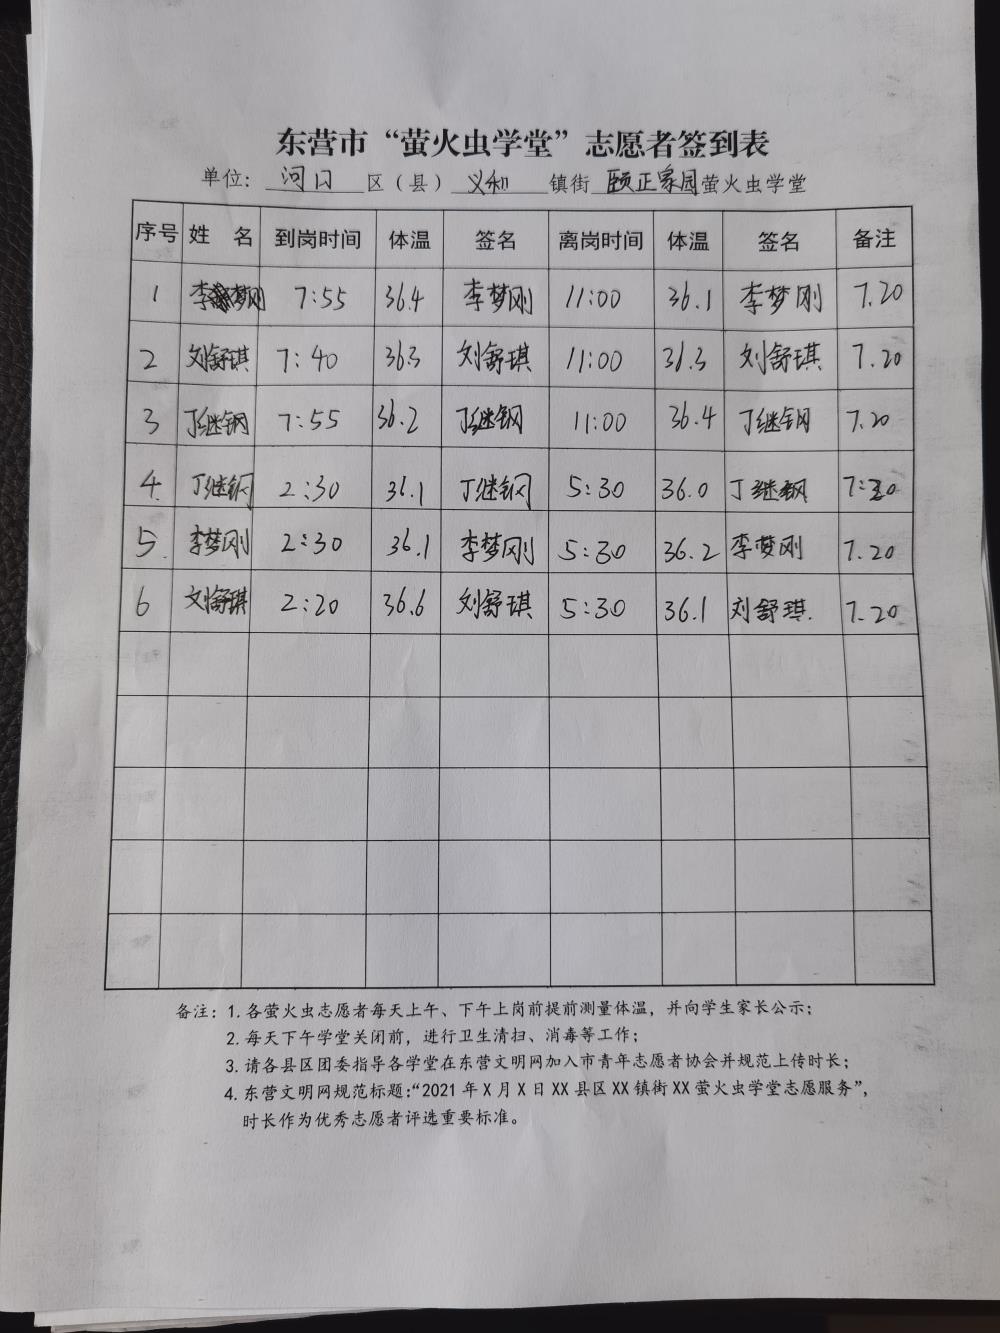 东营市“萤火虫学堂”志愿者签到表
单位：河口区（县）义和镇街颐正家园萤火虫学堂
序号 姓 名 到岗时间 体温 签名 离岗时间 体温 签名 备注
1 李梦刚 7:55 36.4 李梦刚 11:00 36.1 李梦刚 7.20
2 刘舒琪 7:40 36.3 刘舒琪 11:00 36.3 刘舒琪 7.20
3 丁继钢 7:55 36.2 丁继钢 11:00 36.4 丁继钢 7.20
4 丁继钢 2:30 36.1 丁继钢 5:30 36.0 丁继钢 7.20
5 李梦刚 2:30 36.1 李梦刚 5:30 36.2 李梦刚 7.20
6 刘舒琪 2:20 36.6 刘舒琪 5:30 36.1 刘舒琪. 7.20
备注：1. 各萤火虫志愿者每天上午、下午上岗前提前测量体温，并向学生家长公示；
2. 每天下午学堂关闭前，进行卫生清扫、消毒等工作；
3. 请各县区团委指导各学堂在东营文明网加入市青年志愿者协会并规范上传时长；
4. 东营文明网规范标题：“2021年X月X日XX县区XX镇街XX萤火虫学堂志愿服务”，
时长作为优秀志愿者评选重要标准。